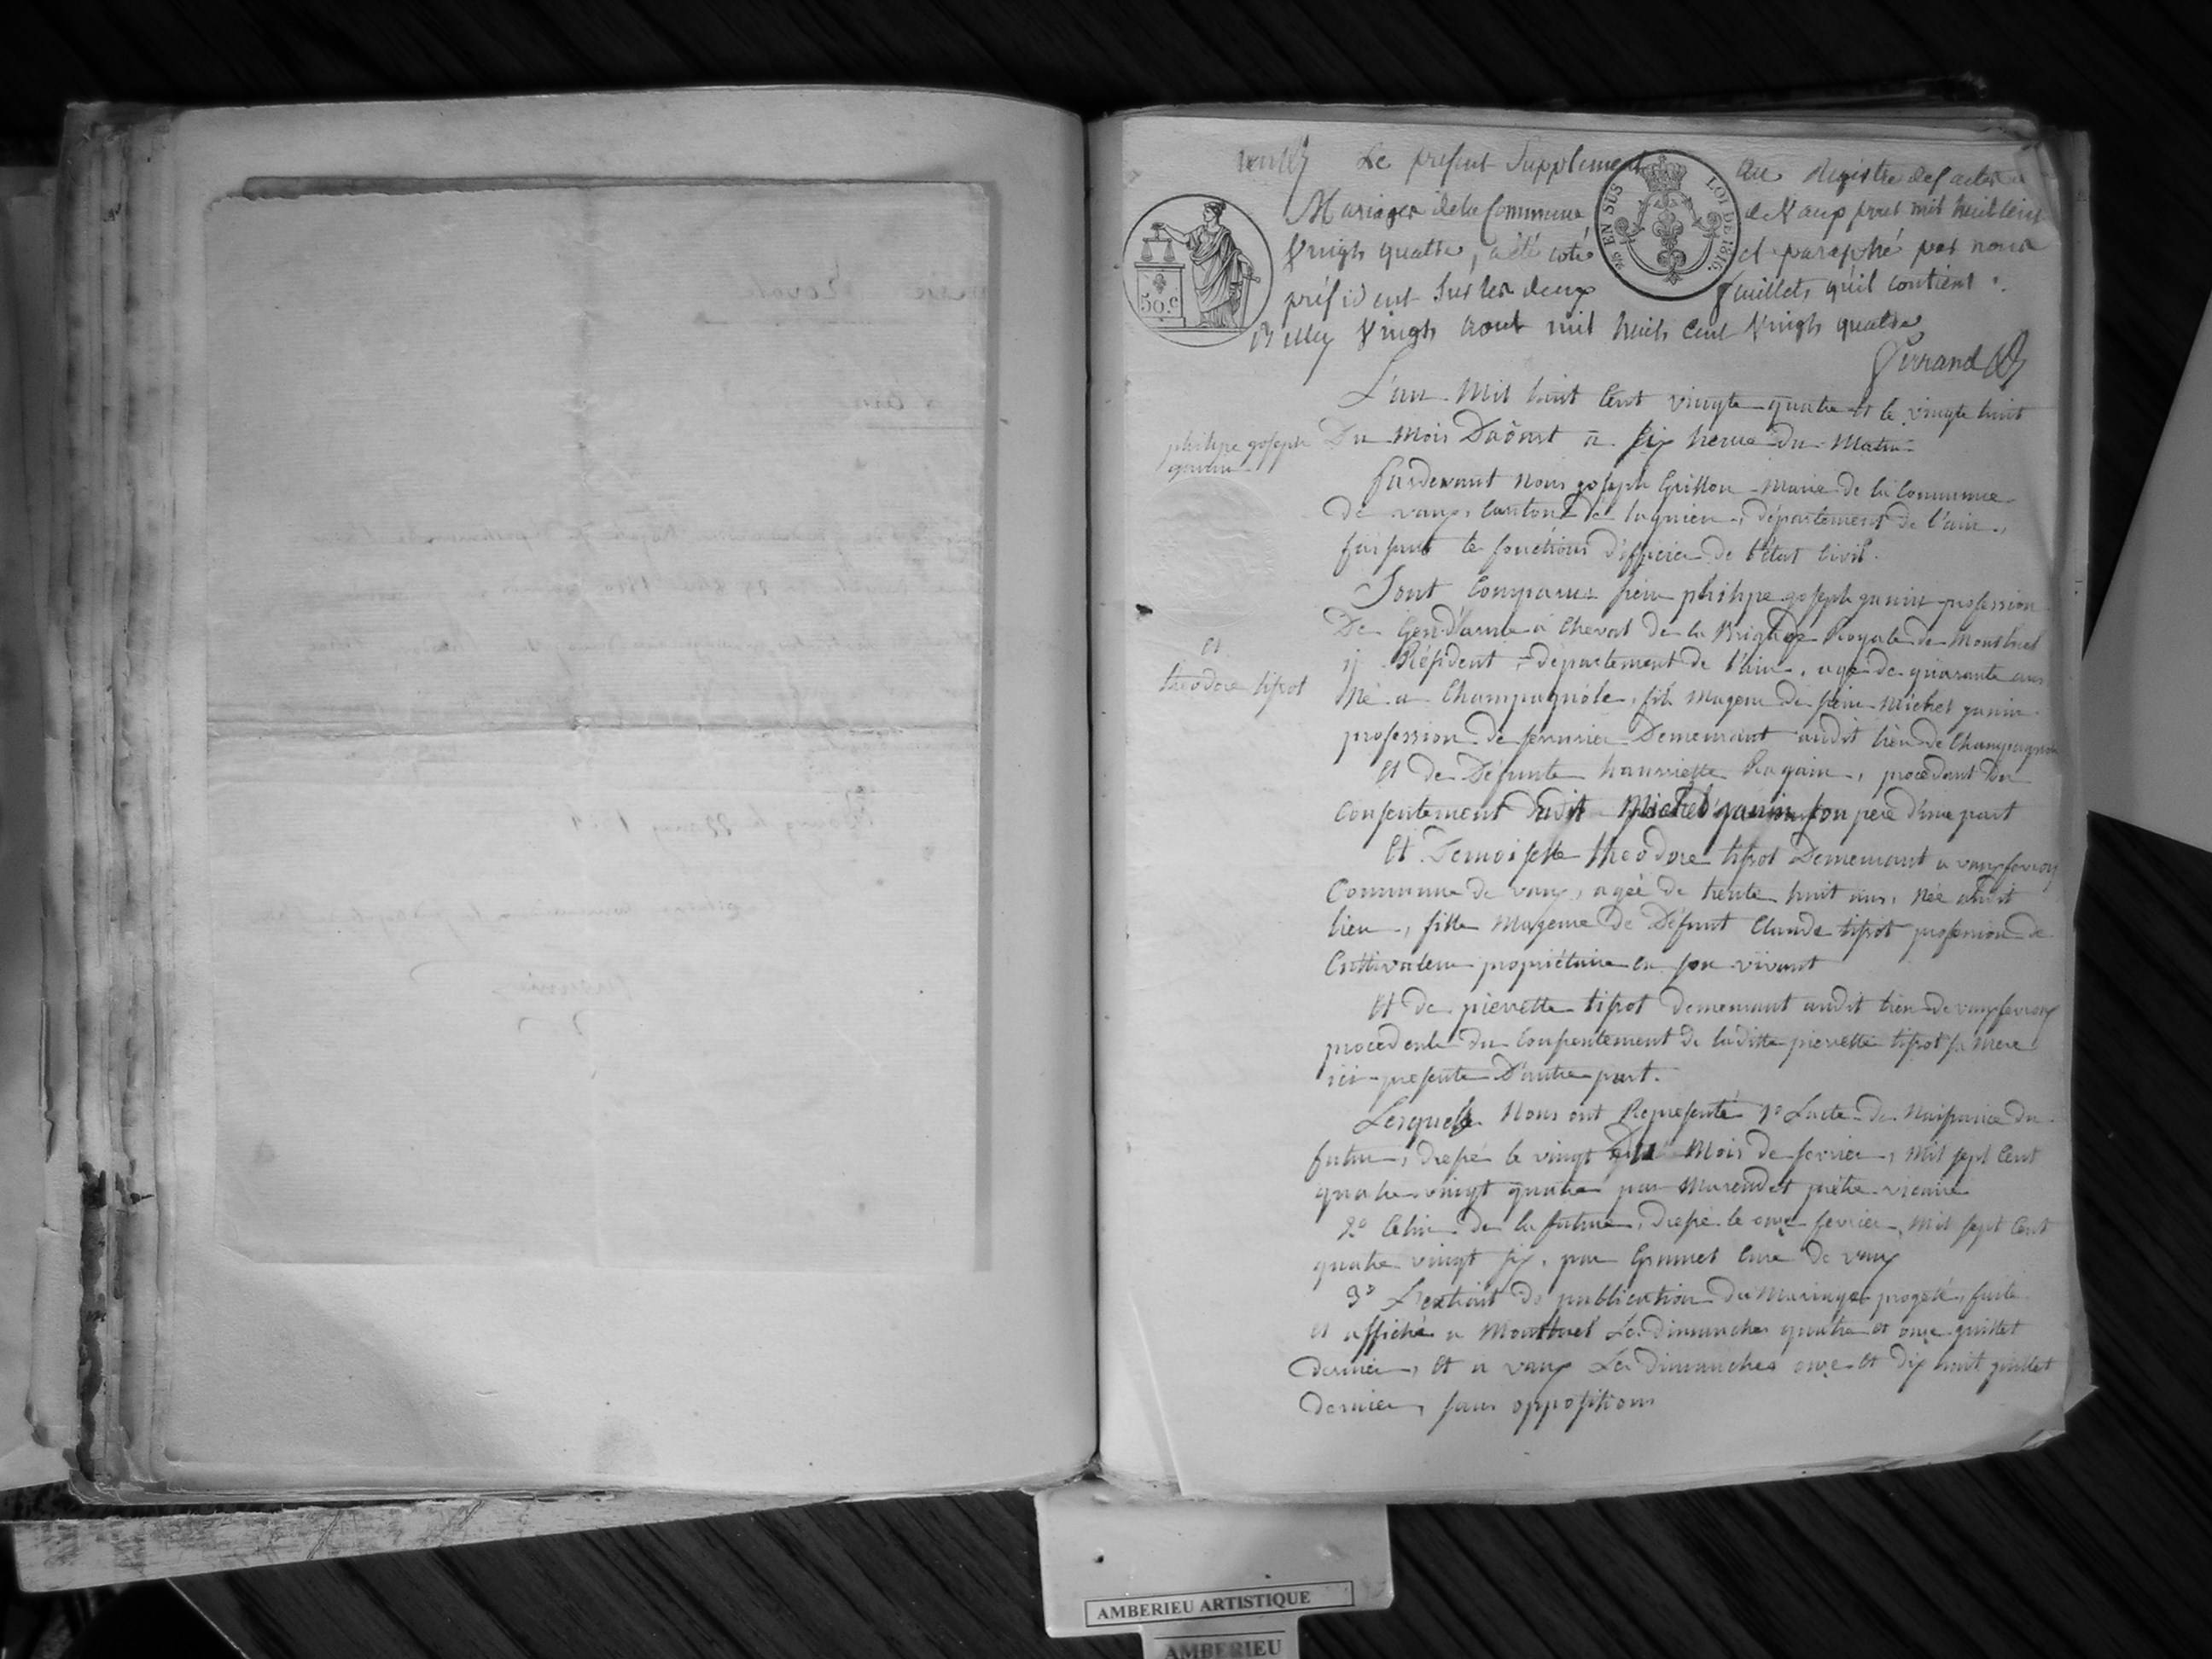 Le present Supplement au Registre des actes de
Mariages de la Commune de Vaux pour mil huit cent
Vingt quatre, a été coté et paraphé par nous
président sur les deux feuillets qu'il contient.
Belley Vingt aout mil huit Cent Vingt quatre
50 c
EN SUS
LOI DE 1816.
L'an Mil huit Cent vingte quatre et le vingte huit
Du Mois Daôust a six heure du Matin
philipe goseph
ganin
Pardevant Nous goseph Grillon Maire de la Commune
De vaux, Canton de lagnieu, département de l'ain,
faisant le fonctions d'officier de l'état Civil.
Sont Comparus sieur philipe goseph ganin profession
De Gend'arme a Cheval de la Brigade Royale de Montluel
y Résident, département de l'ain, age de quarante ans
Né a Champagnole, fils Mageur de sieur Michel ganin
et
theodore tissot
profession de serrurier Demeurant audit lieu de Champagnole
et de Défunte hanriette Ragain, procedant du
Consentement dudit Michel ganin son pere d'une part
Et Demoiselle theodore tissot Demeurant a vauxfevroy
Commune de vaux, agée de trente huit ans, Née audit
lieu, fille Mageure de Défunt Claude tissot profession de
Cultivateur propriétaire en son vivant
et de pierrette tissot demeurant audit lieu de vauxfevroy
procedente du Consentement de laditte pierrette tissot sa Mere
ici presente D'autre part.
Lesquels Nous ont Representé 1º Lacte de Naissance du
futur, dressé le vingt du Mois de fevrier, Mil sept Cent
quatre vingt quatre par Marendet prêtre vicaire
2º Celui de la future, dressé le onze fevrier, Mil sept Cent
quatre vingt six, par Grumet Curé de vaux
3º L'extrait de publication du Mariage progeté, faite
et affiché a Montluel Les dimanches quatre et onze guillet
dernier, et a vaux Les dimanches onze et dix huit guillet
dernier, sans oppositions
AMBERIEU ARTISTIQUE
AMBERIEU